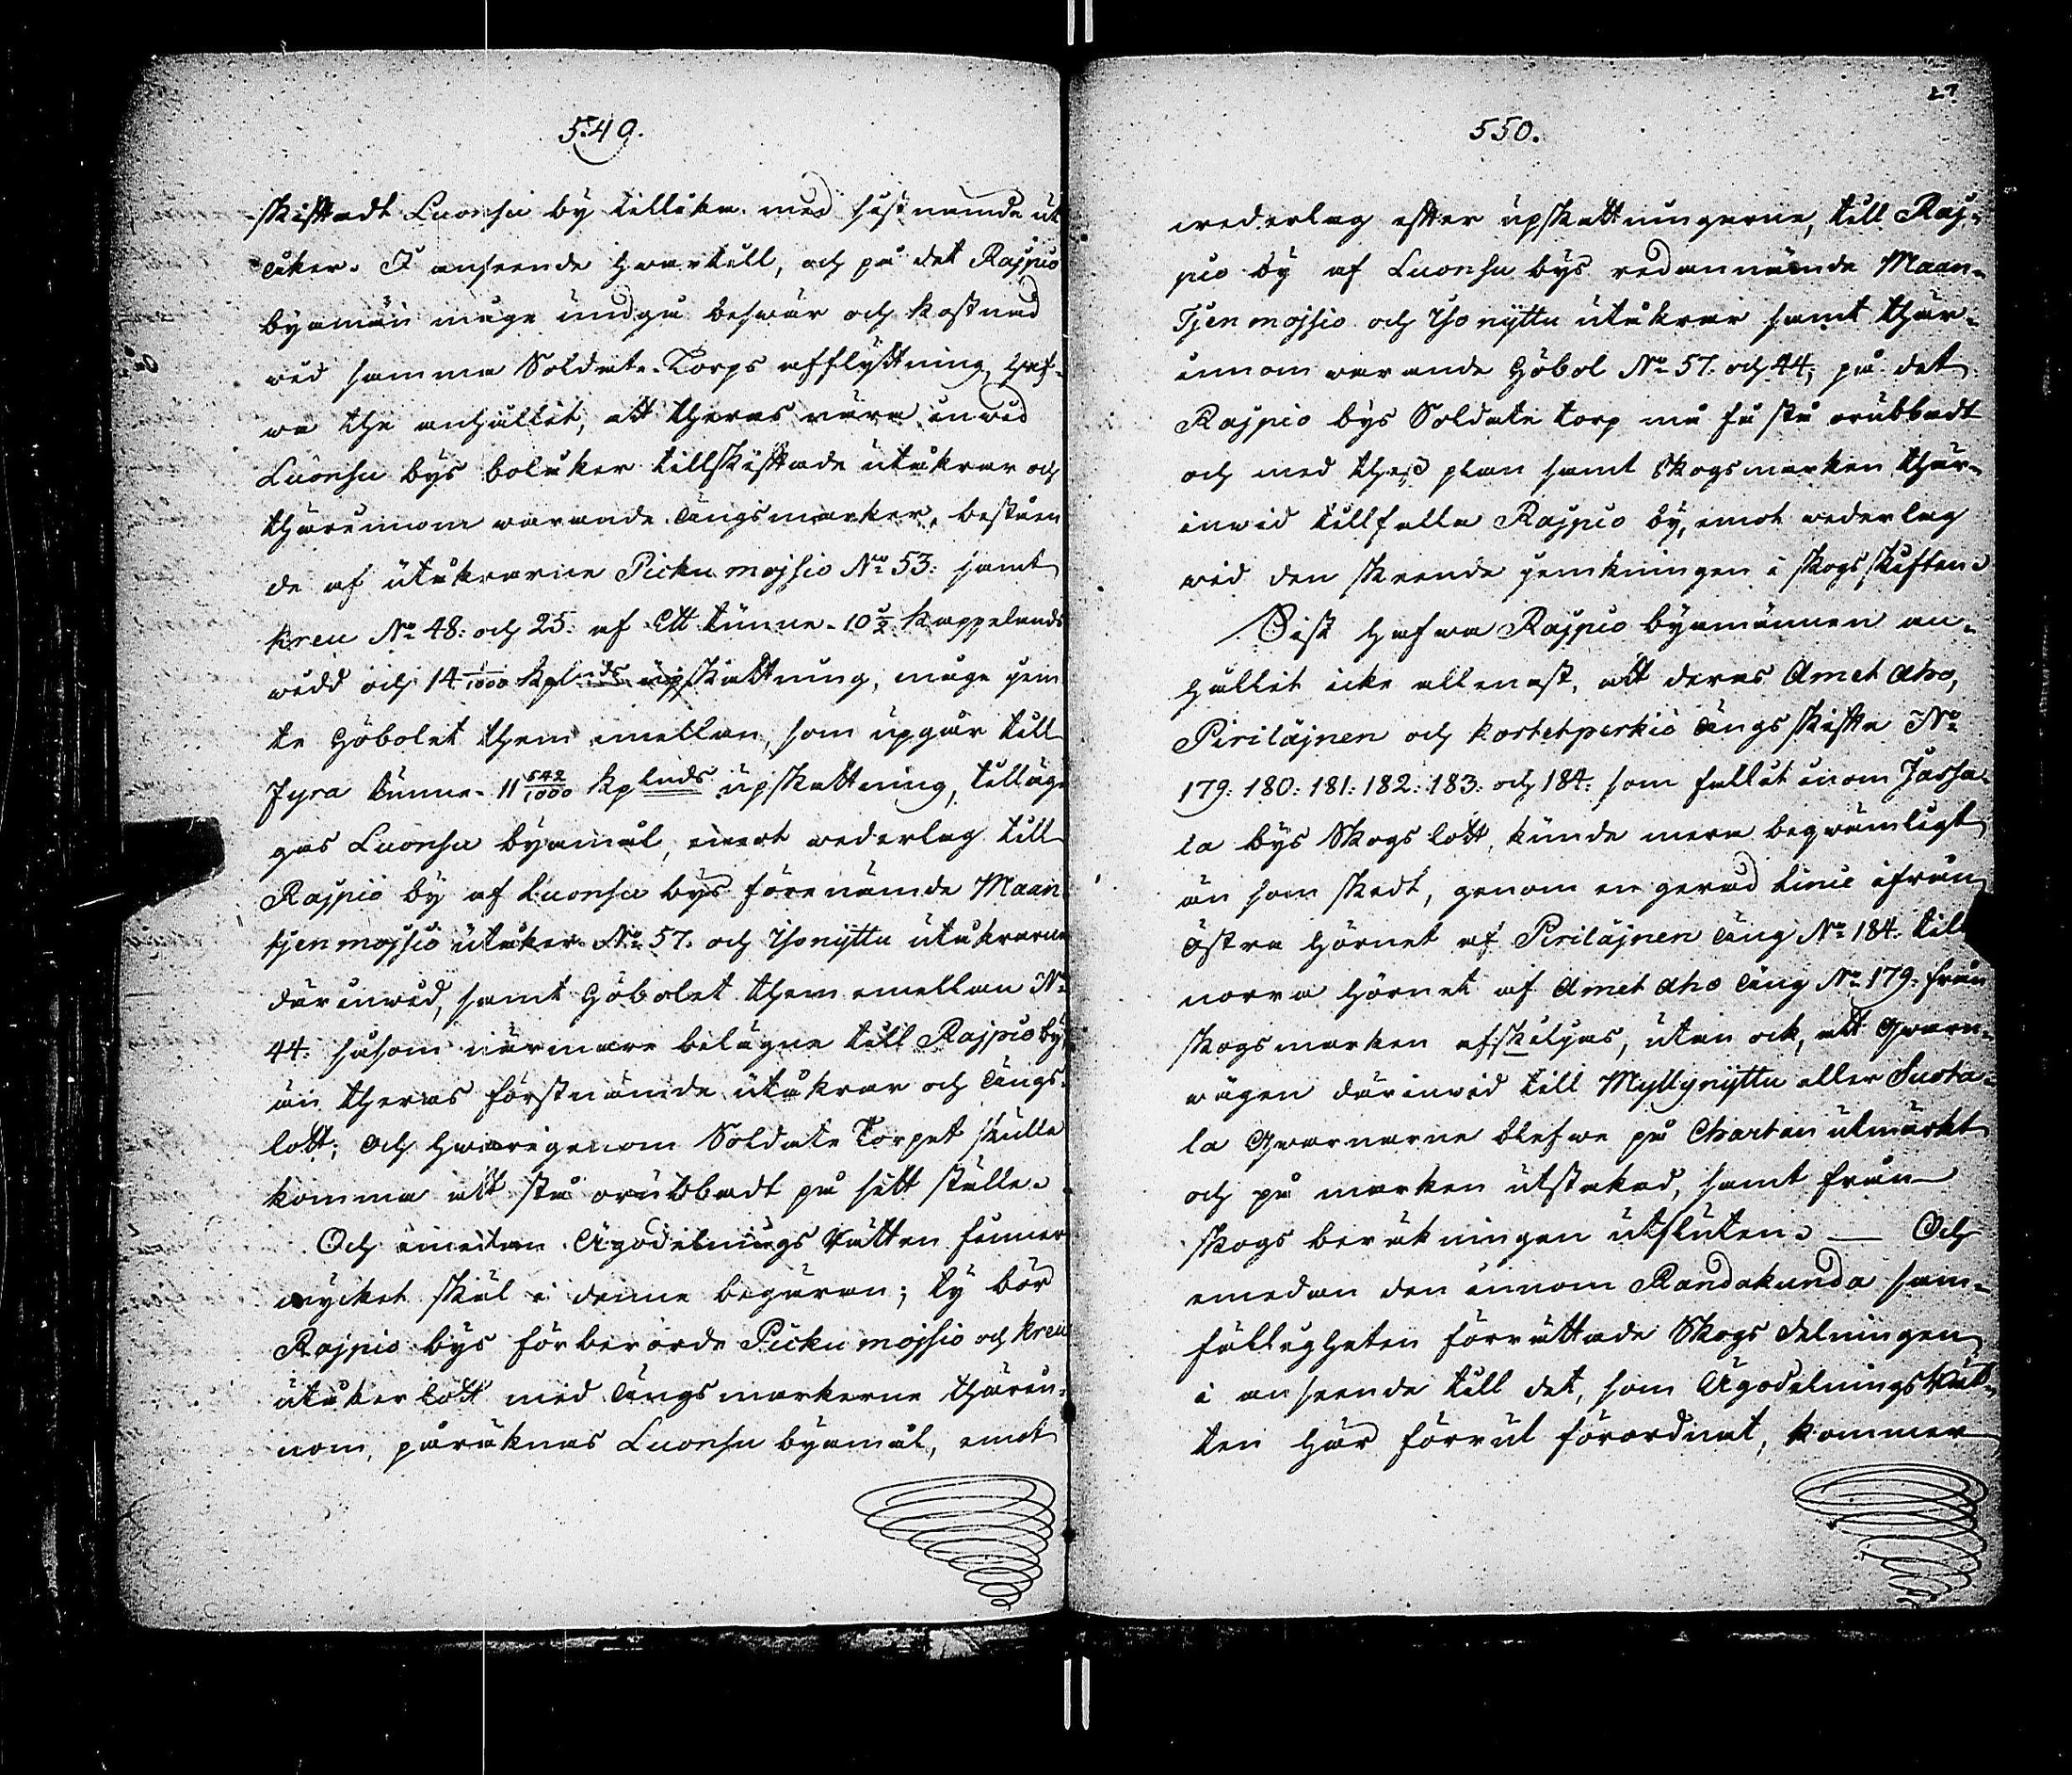 549.
skiftadt Luonsu by tillika med sistnämde ut
åker. I anseende hwartill, och på det Rajpio
byamän måge undgå beswär och kostnad
wid samma Soldate-Torps afflyttning, haf-
wa the anhållit, att theras nära inwid
Luonsu bys bolåker tillskiftade utåkrar och
thärinnom warande ängsmarker, beståen
de af utåkrarne Picku mojsio No 53: samt
Kreu No 48: och 25: af Ett tunne- 10 1/2 kappelands
widd och 14 1/1000 kplnds upskattning, måge jem
te Göbolet them emellan, som upgår till
Fyra tunne- 11 542/1000 kplnds upskattning, tilläg-
gas Luonsu byamål, emot wederlag till
Rajpio by af Luonsu bys förenämde Maan
tjen mojsio utåker No 57. och Iso nijttu utåkrarne
därinwid, samt Göbolet them emellan No
44: såsom närmare belägne till Rajpio by,
än theras förstnämde utåkrar och ängs-
lott; och hwarigenom Soldate Torpet skulle
komma att stå orubbadt på sitt ställe.
Och emedan Ägodelnings Rätten finner
mycket skäl i denne begäran; ty bör
Rajpio bys förberörde Picku mojsio och Kreu
utåker lott med ängsmarkerne thärin-
nom, påräknas Luonsu byamål, emot
27
550.
wederlag efter upskattningarne, till Raj-
pio by af Luonsu bys redannämde Maan-
Tjen mojsio och Iso nijttu utåkrar samt thär-
innom warande Göbol No 57. och 44; på det
Rajpio bys Soldate torp må få stå orubbadt
och med thess plan samt skogsmarken thär-
inwid tillfalla Rajpio by, emot wederlag
wid den skeende jemkningen i skogsskiften.
Sist hafwa Rajpio byamännen an-
hållit icke allenast, att deras Amet aho,
Piriläjnen och kortetperkio ängsskifte No
179: 180: 181: 182: 183: och 184: som fallit inom Jassa-
la bys Skogs lott, kunde mera beqwämligt
än som skedt, genom en gerad linie ifrån
östra hörnet af Piriläjnen äng No 184. till
norra hörnet af Amet aho äng No 179: från
skogsmarken afskiljas, utan ock, att qwarn-
wägen därinwid till Myllynijttu eller Suota-
la qwarnarne blefwe på Chartan utmärkt
och på marken utstakad, samt från
skogs beräkningen utsluten. — Och
emedan den innom Randakunda sam-
fälligheten förrättade Skogs delningen
i anseende till det, som Ägodelnings Rät-
ten här förrut förordnat, kommer